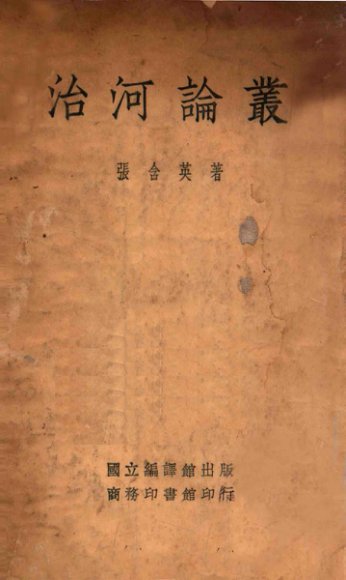 治河論叢
張含英著
國立編譯館出版
商務印書館印行